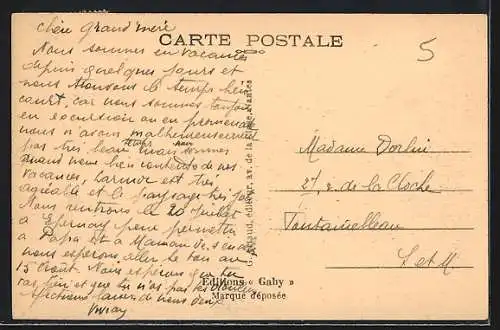 Chère Grand'mère
CARTE POSTALE
Nous sommes en vacances
depuis quelques jours et
nous trouvons le temps bien
court, car nous sommes toujours
en excursion ou en promenade
nous n'avons malheureusement
pas très beau temps mais sommes
quand même bien contents de nos
vacances, l'armor est très
agréable et le paysage très joli
Nous rentrons le 20 Juillet
à Epernay pour permettre
à Papa et à Maman de s'en
nous espérons aller te voir au
15 Août. Nous espérons que tu
vas bien et que tu n'as pas
Affectueux baisers de nous deux
5
Madame Dorlin
27, r. de la Cloche
Fontainebleau
S et M
G. Artaud, éditeur, av. de la Nantes
Editions « Gaby »
Marque déposée